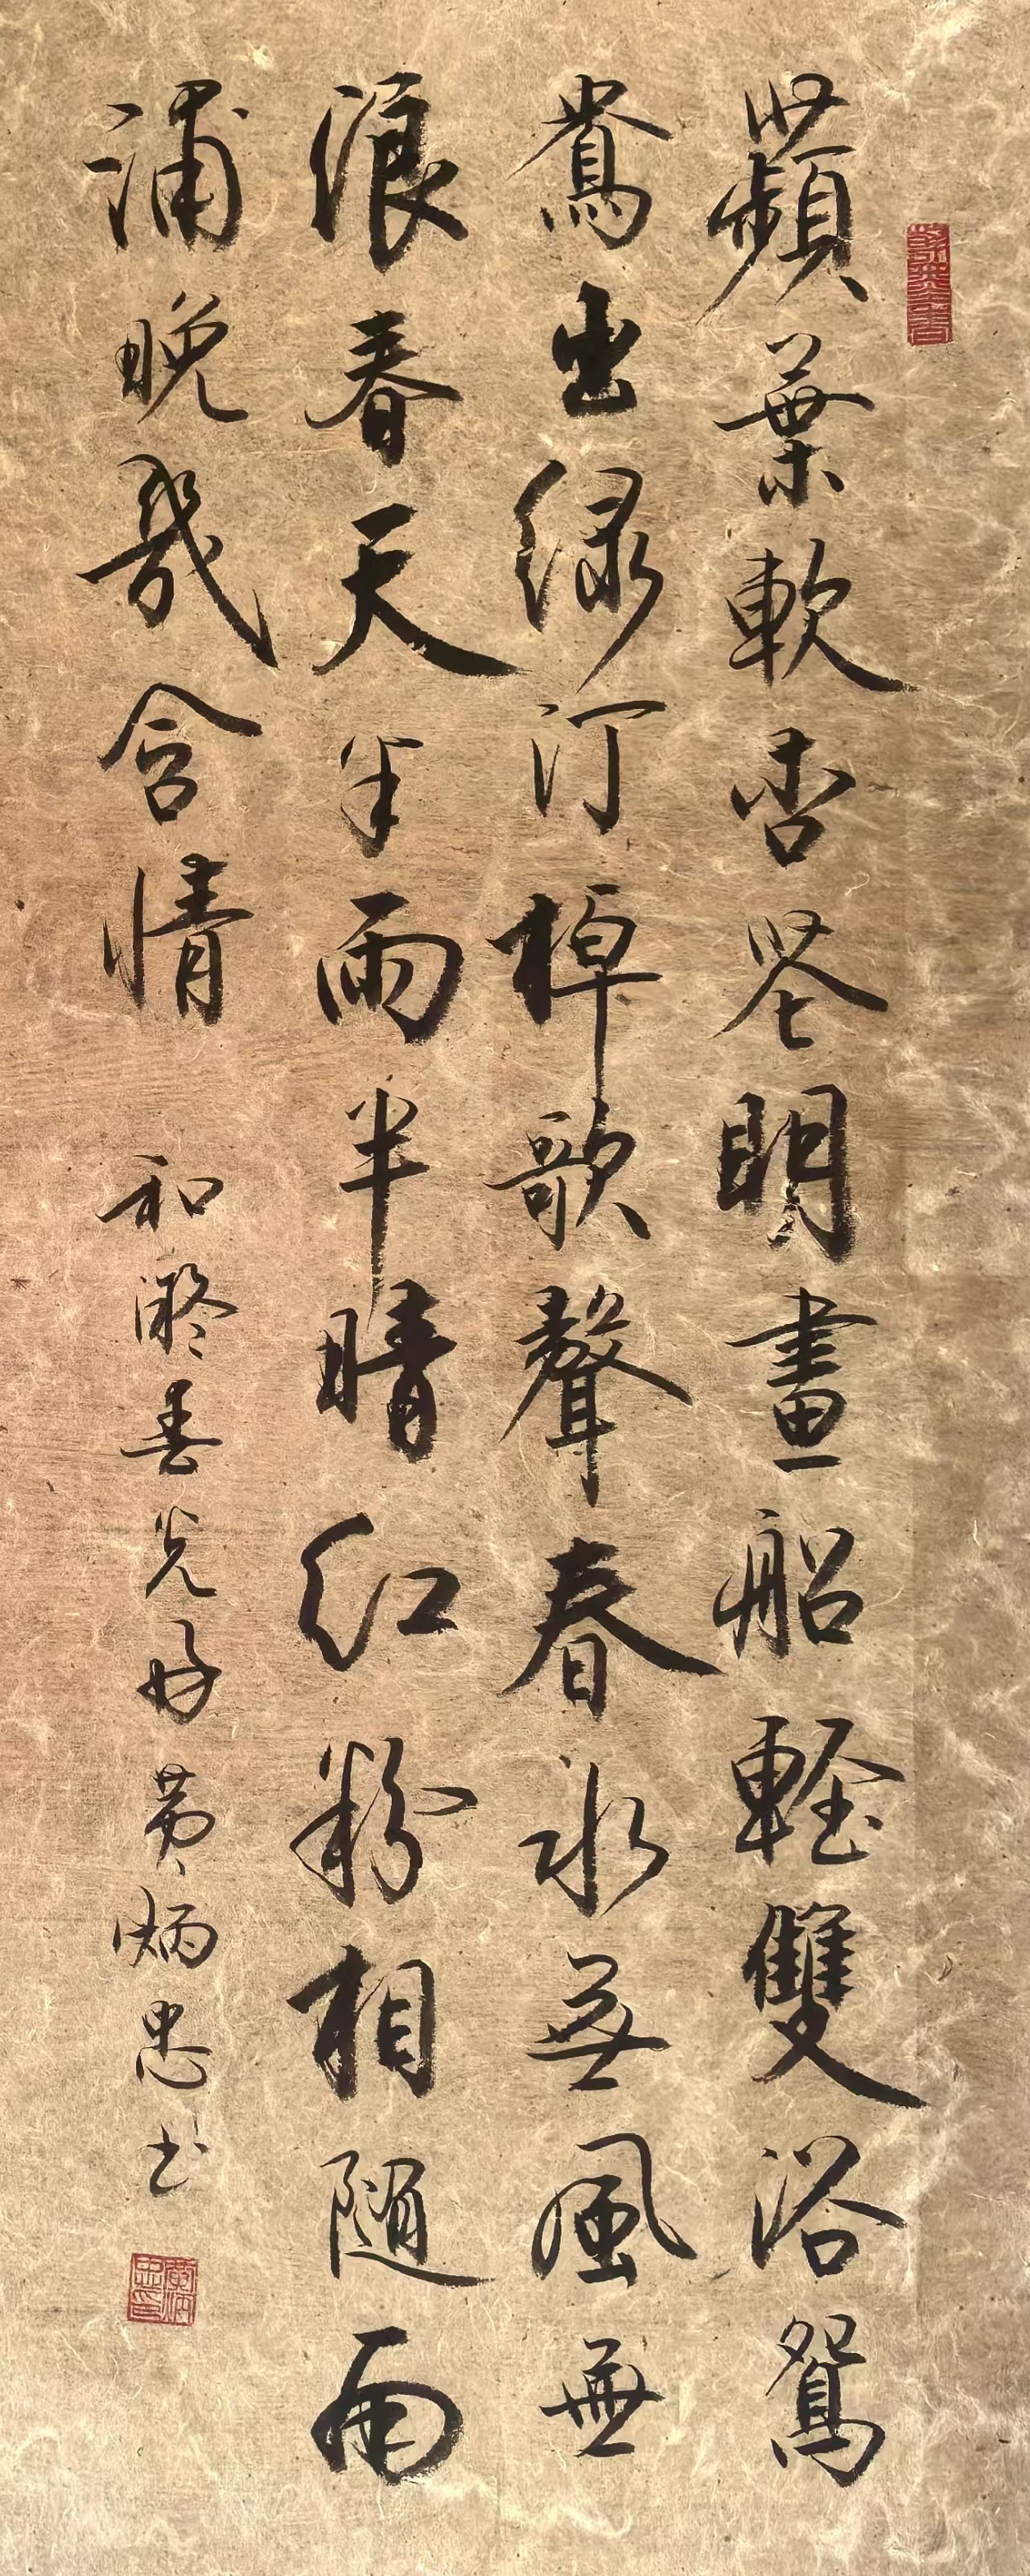 蘋葉軟杏花明畫船輕雙浴鴛
鴦出绿汀棹歌聲春水無風無
浪春天半雨半晴红粉相随南
浦晚幾含情 和凝春光好 黄炳忠书
黄炳忠印